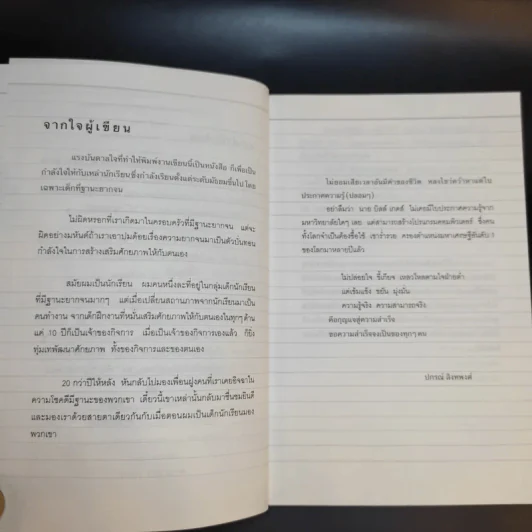 จากใจผู้เขียน
แรงบันดาลใจที่ทำให้พิมพ์งานเขียนนี้เป็นหนังสือ ก็เพื่อเป็น
กำลังใจให้กับเหล่านักเรียนซึ่งกำลังเรียนตั้งแต่ระดับมัธยมขึ้นไป โดย
เฉพาะเด็กที่ฐานะยากจน
ไม่ผิดหรอกที่เราเกิดมาในครอบครัวที่มีฐานะยากจน แต่จะ
ผิดอย่างมหันต์ถ้าเราเอาปมด้อยเรื่องความยากจนมาเป็นตัวบั่นทอน
กำลังใจในการสร้างเสริมศักยภาพให้กับตนเอง
สมัยผมเป็นนักเรียน ผมคนหนึ่งละที่อยู่ในกลุ่มเด็กนักเรียน
ที่มีฐานะยากจนมากๆ แต่เมื่อเปลี่ยนสถานภาพจากนักเรียนมาเป็น
คนทำงาน จากเด็กฝึกงานที่หมั่นเสริมศักยภาพให้กับตนเองในทุกๆ ด้าน
แค่ 10 ปีก็เป็นเจ้าของกิจการ เมื่อเป็นเจ้าของกิจการเองแล้ว ก็ยัง
ทุ่มเทพัฒนาศักยภาพ ทั้งของกิจการและของตนเอง
20 กว่าปีให้หลัง หันกลับไปมองเพื่อนฝูงคนที่เราเคยอิจฉาใน
ความโชคดีมีฐานะของพวกเขา เดี๋ยวนี้เขาเหล่านั้นกลับมาชื่นชมยินดี
และมองเราด้วยสายตาเดียวกันกับเมื่อตอนผมเป็นเด็กนักเรียนมอง
พวกเขา
ไม่ยอมเสียเวลาอันมีค่าของชีวิต หลงใหลคว้าตามแต่ใบ
ประกาศความรู้ (ปลอมๆ)
อย่าลืมว่า นาย บิลล์ เกตส์ ไม่เคยมีใบประกาศความรู้จาก
มหาวิทยาลัยใดๆ เลย แต่สามารถสร้างโปรแกรมคอมพิวเตอร์ ซึ่งคน
ทั้งโลกจำเป็นต้องซื้อใช้ เขาร่ำรวย ครองตำแหน่งมหาเศรษฐีอันดับ 1
ของโลกมาหลายปีแล้ว
ไม่ปล่อยใจ ขี้เกียจ เหลวไหลตามใจฝ่ายต่ำ
แต่เข้มแข็ง ขยัน มุ่งมั่น
ความรู้จริง ความสามารถจริง
คือกุญแจสู่ความสำเร็จ
ขอความสำเร็จจงเป็นของทุกๆ คน
ปกรณ์ ลิงทพงศ์